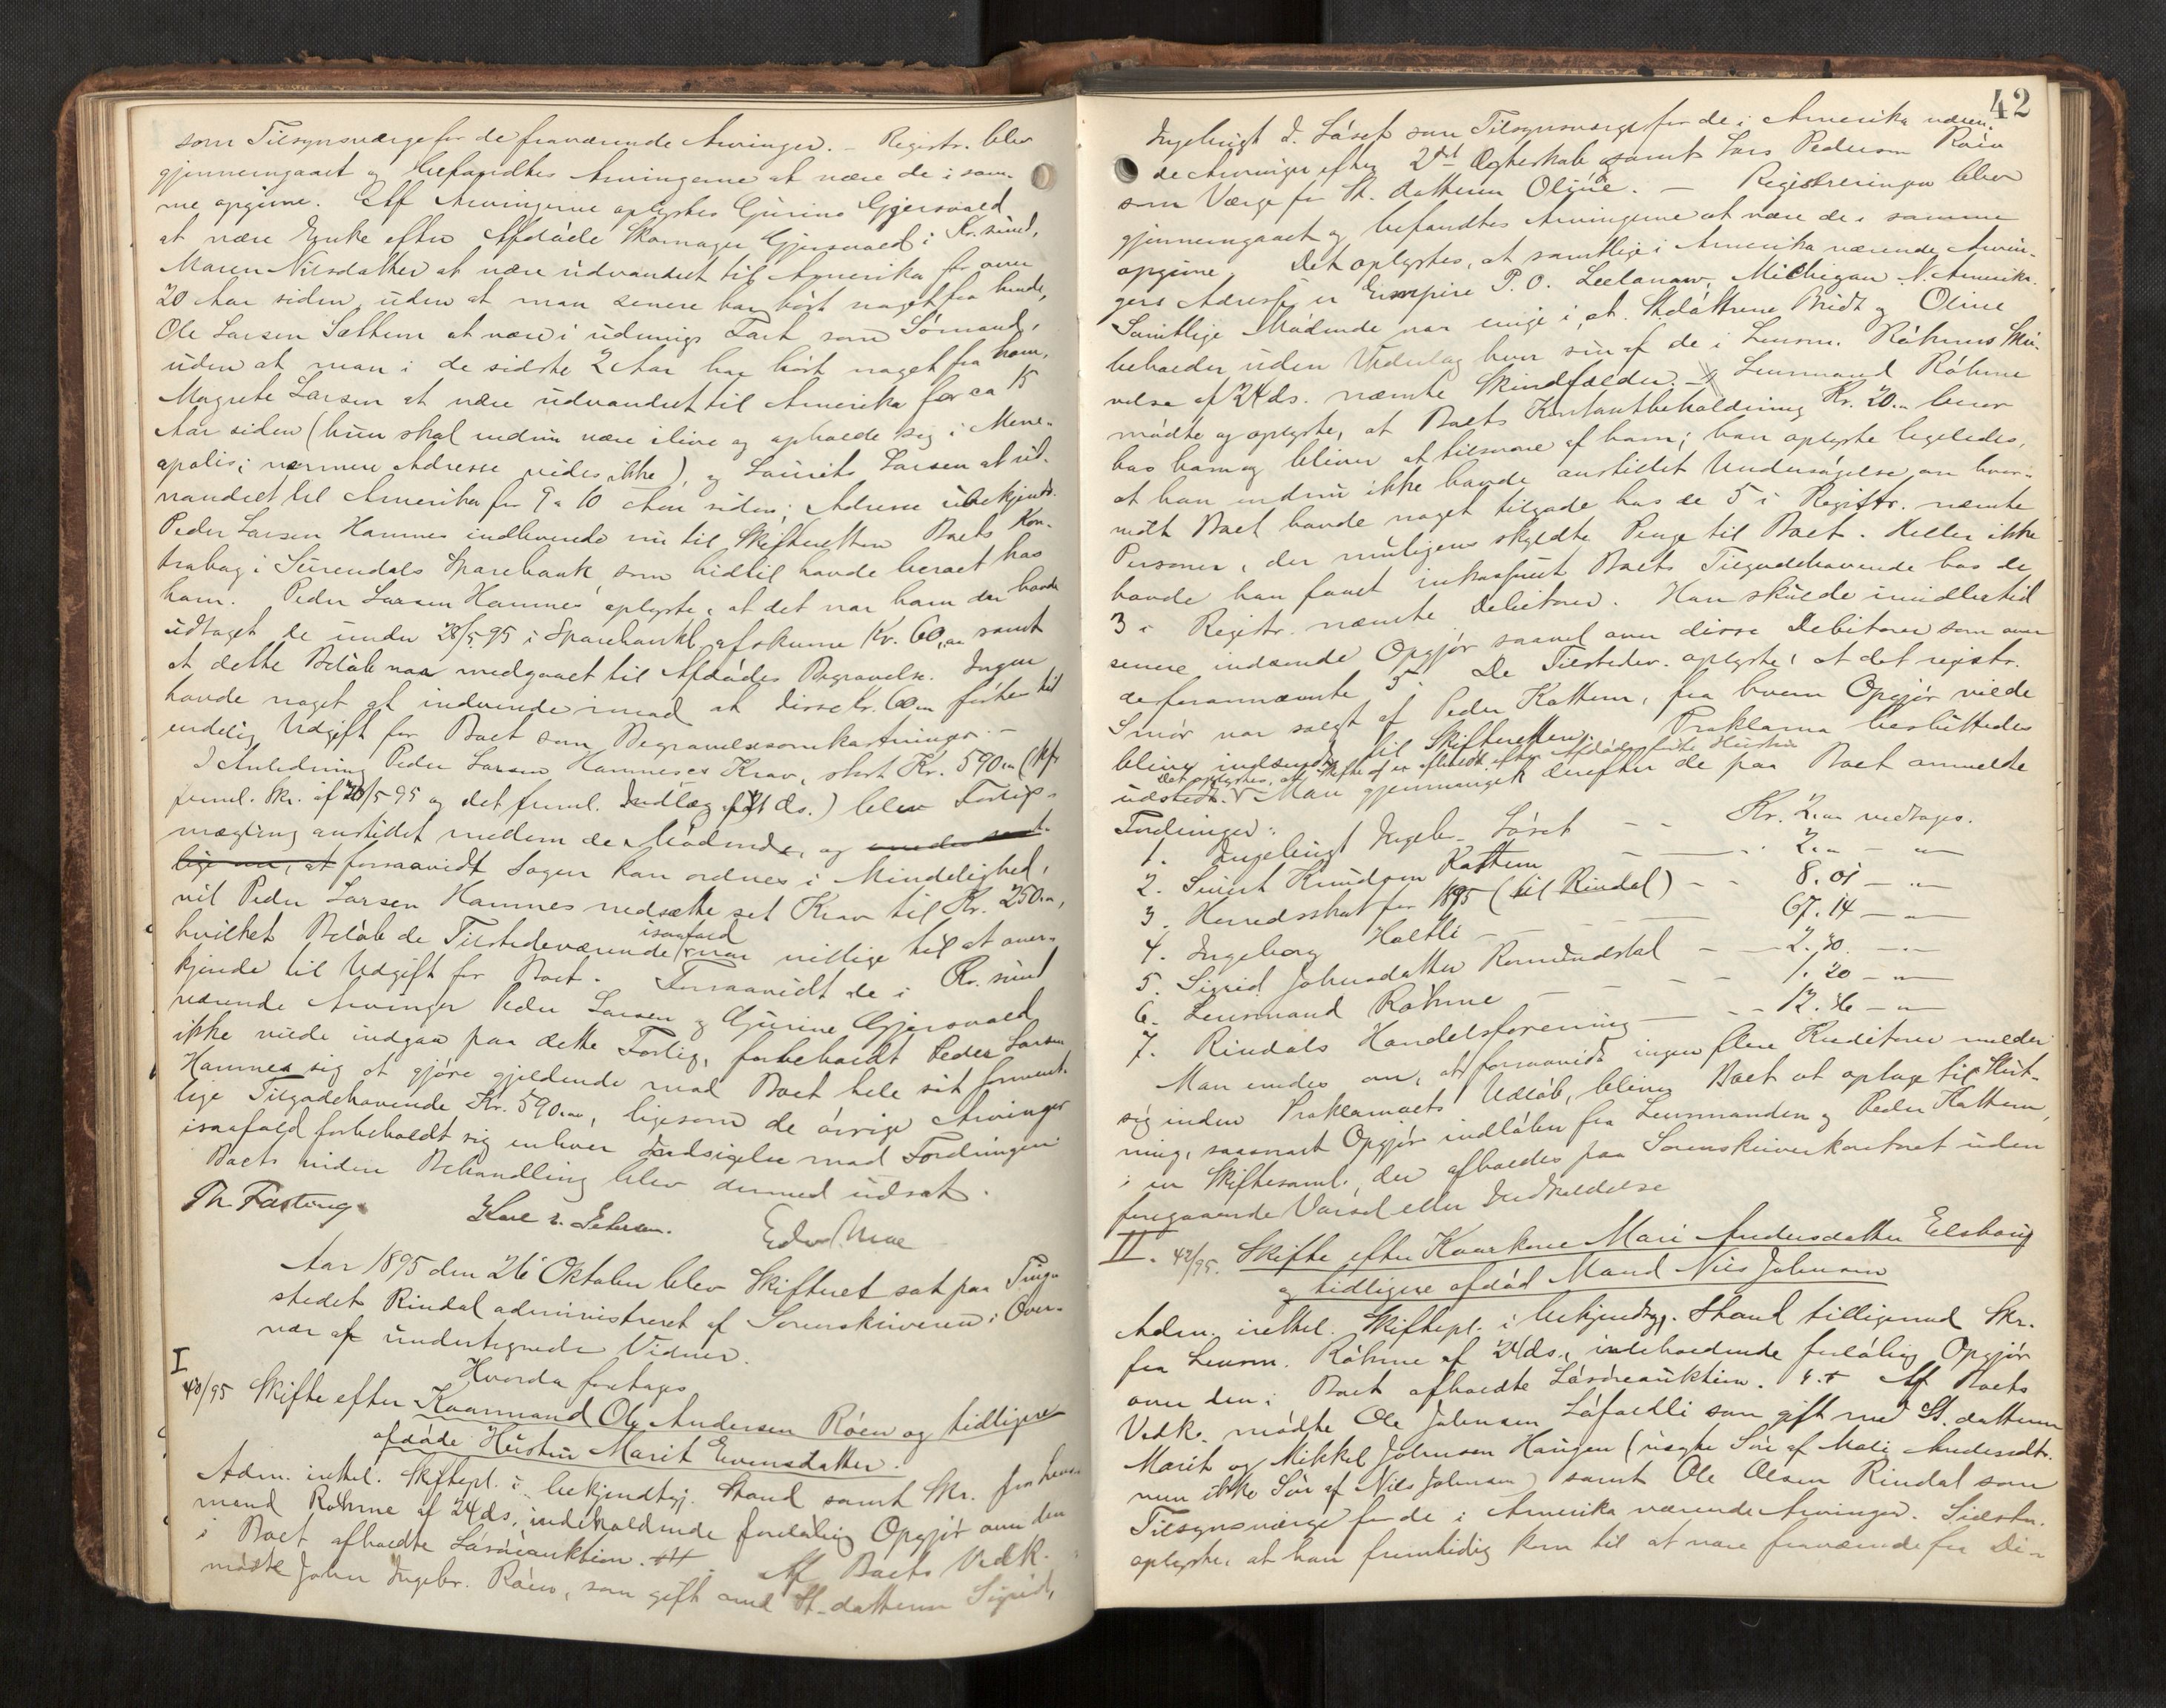 som Tilsynsværge for de fraværende Arvinger. – Registr. blev
gjennemgaaet og befandtes Arvingerne at være de i sam-
me opgivne. Af Arvingerne oplystes Gurine Gjersvold
at være Enke efter Afdøde Skomager Gjersvold i Kr.sund,
Maren Nilsdatter at være udvandret til Amerika for over
20 Aar siden, uden at man senere har hørt noget fra hende,
Ole Larsen Sæthem at være i udenrigs Fart som Sømand,
uden at man i de sidste 2 Aar har hørt noget fra ham,
Magrete Larsen at være udvandret til Amerika for ca 15
Aar siden (hun skal endnu være ilive og opholde sig i Mene-
apolis; nærmere Adresse vides ikke), og Laurits Larsen at ud-
vandret til Amerika for 9 a 10 Aar siden; Adresse ubekjendt.
Peder Larsen Hamnes indleverede nu til Skifteretten Boets Kon-
trabog i Surendals Sparebank som hidtil havde beroet hos
ham. Peder Larsen Hamnes oplyste, at det var ham der havde
udtaget de under 28/5 95 i Sparebankb. afskrevne Kr. 60,00 samt
at dette Beløb var medgaaet til Afdødes Begravelse. Ingen
havde noget at indvende imod at disse Kr. 60,00 førtes til
endelig Udgift for Boet som Begravelsesomkostninger. –
I Anledning Peder Larsen Hamneses Krav, stort Kr. 590,00 (kfr
freml. Skr. af 20/5 95 og det freml. Indlæg af 21 ds.) blev Forligs-
mægling anstillet mellem de Mødende, og enedes samt-
lige om, at forsaavidt Sagen kan ordnes i Mindelighed,
vil Peder Larsen Hamnes nedsætte sit Krav til Kr. 250,00,
hvilket Beløb de Tilstedeværende isaafald var villige til at aner-
kjende til Udgift for Boet. Forsaavidt de i Kr.sund
værende Arvinger Peder Larsen og Gurine Gjersvold
ikke vilde indgaa paa dette Forlig, forbeholdt Peder Larsen
Hamnes sig at gjøre gjeldende mod Boet hele sit forment-
lige Tilgodehavende Kr. 590,00, ligesom de øvrige Arvinger
isaafald forbeholdt sig enhver Indsigelse mod Fordringen
Boets videre Behandling blev dermed udsat.
Th. Fasting.
Edv. Moe
Aar 1895 den 26 Oktober blev Skifteret sat paa Tinge
stedet Rindal administreret af Sorenskriveren i Over-
vær af undertegnede Vidner.
Hvorda foretages
I
40/95 Skifte efter Kaarmand Ole Andersen Røen og tidligere
afdøde Hustru Marit Evensdatter.
Adm. irettel. Skiftepl. i bekjendtgj. Stand samt Skr. fra Lens-
mand Røhme af 24 ds., indeholdende foreløbig Opgjør over den
i Boet afholdte Løsøreauktion. Af Boets Vedk.
mødte John Ingebr. Røen, som gift med St.datteren Sigrid,
42
Ingebrigt I. Løset som Tilsynsværge for de i Amerika væren-
de Arvinger efter 2det Ægteskab samt Lars Pedersen Røen
som Værge for St. datteren Oline. – Registreringen blev
gjennemgaaet og befandtes Arvingerne at være de i samme
opgivne. Det oplystes, at samtlige i Amerika værende Arvin-
gers Adresse er Empire P. O. Leelanaw, Michigan N. Amerika.
Samtlige Mødende var enige i, at Stdøttrene Bridt og Oline
beholder uden Vederlag hver sin af de i Lensm. Røhmes Skri-
velse af 24 ds. nævnte Skindfælder. – Lensmand Røhme
mødte og oplyste, at Boets Kontantbeholdning Kr. 20.00 beror
hos ham og bliver at tilsvare af ham; han oplyste ligeledes,
at han endnu ikke havde anstillet Undersøgelse om hvor-
vidt Boet havde noget tilgode hos de 5 i Registr. nævnte
Personer, der muligens skyldte Penge til Boet. Heller ikke
havde han faaet inkasseret Boets Tilgodehavende hos de
3 i Registr. nævnte Debitorer. Han skulde imidlertid
senere indsende Opgjør saavel over disse Debitorer som over
de forannævnte 5. De Tilstedev. oplyste, at det registr.
Smør var solgt af Peder Kattem, fra hvem Opgjør vilde
blive indsendt til Skifteretten. Proklama besluttedes
Det oplystes, at Skifte ei er afholdt efter Afdødes første Hustru
udstedt. Man gjennemgik derefter de paa Boet anmeldte
Fordringer:
1. Ingebrigt Ingebr. Løset – – Kr. 2.00 vedtages.
2. Sivert Knudsen Kattem – – 2.00 – „ –
3. Herredsskat for 1895 (til Rindal) – – 8.01 – „ –
4. Ingeborg Holtli – – – 67.14 – „ –
5. Sigrid Johnsdatter Romundstad – – 2.70 – „ –
6. Lensmand Røhme – – – 1.20 – „ –
7. Rindals Handelsforening – – 12.46 – „ –
Man enedes om, at forsaavidt ingen flere Kreditorer melder
sig inden Proklamaets Udløb, bliver Boet at optage til Slut-
ning, saasnart Opgjør indløber fra Lensmanden og Peder Kattem,
i en Skiftesaml. der afholdes paa Sorenskriverkontoret uden
foregaaende Varsel eller Indkaldelse
II. 42/95. Skifte efter Kaarkone Mari Andersdatter Elshaug
og tidligere afdød Mand Nils Johnsen
Adm. irettel. Skiftepl. i bekjendtgj. Stand tilligemed Skr.
fra Lensm. Røhme af 24 ds., indeholdende foreløbig Opgjør
over den i Boet afholdte Løsøreauktion. Af Boets
Vedk. mødte Ole Johnsen Løfaldli som gift med St. datteren
Marit og Mikkel Johnsen Haugen (uægte Søn af Mari Andersdtr.
men ikke Søn af Nils Johnsen) samt Ole Olsen Rindal som
Tilsynsværge for de i Amerika værende Arvinger. Sidstn.
oplyste, at han fremtidig kom til at være fraværende fra Di-